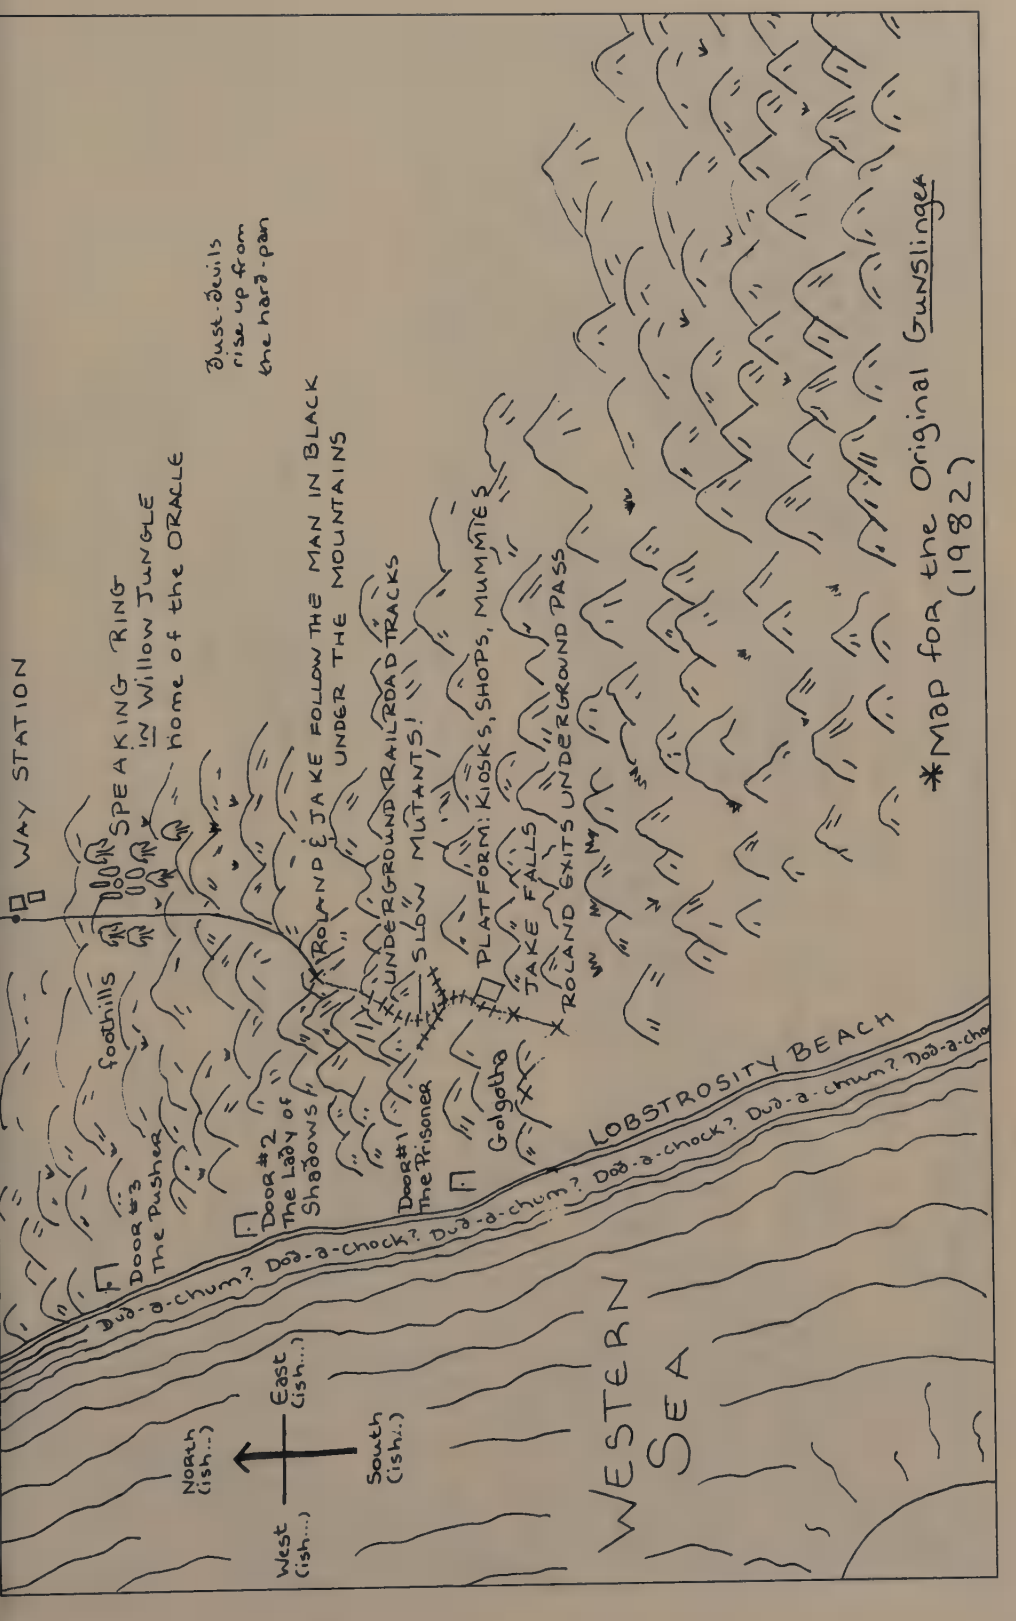 WAY STATION
SPEAKING RING
IN Willow JUNGLE
home of the ORACLE
Dust-devils
rise up from
the hard-pan
foothills
ROLAND & JAKE FOLLOW THE MAN IN BLACK
UNDER THE MOUNTAINS
UNDERGROUND RAILROAD TRACKS
SLOW MUTANTS!
PLATFORM: KIOSKS, SHOPS, MUMMIES
JAKE FALLS
ROLAND EXITS UNDERGROUND PASS
Golgotha
DOOR #3
The Pusher
DOOR #2
The Lady of
Shadows
DOOR #1
The Prisoner
LOBSTROSITY BEACH
Dud-a-chum? Dod-a-chock? Dud-a-chum? Dad-a-chock? Dud-a-chum? Dod-a-cho
North
(ish...)
West
(ish...)
East
(ish...)
South
(ish...)
WESTERN
SEA
*Map for the Original Gunslinger
(1982)